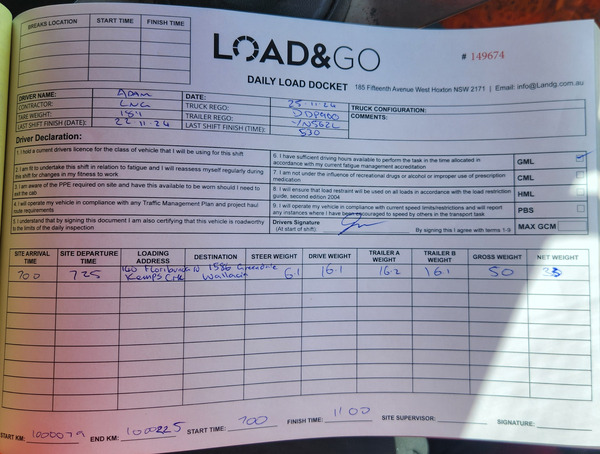 BREAKS LOCATION START TIME FINISH TIME
LOAD&GO
# 149674
DAILY LOAD DOCKET 185 Fifteenth Avenue West Hoxton NSW 2171 | Email: info@Landg.com.au
DRIVER NAME: ADAM DATE: 25-11-24
CONTRACTOR: LNG TRUCK REGO: DDP900
TARE WEIGHT: TRAILER REGO:
LAST SHIFT FINISH (DATE): 22-11-24 LAST SHIFT FINISH (TIME): 530
TRUCK CONFIGURATION:
COMMENTS:
Driver Declaration:
1. I hold a current drivers licence for the class of vehicle that I will be using for this shift
2. I am fit to undertake this shift in relation to fatigue and I will reassess myself regularly during this shift for changes in my fitness to work
3. I am aware of the PPE required on site and have this available to be worn should I need to exit the cab
4. I will operate my vehicle in compliance with any Traffic Management Plan and project haul route requirements
5. I understand that by signing this document I am also certifying that this vehicle is roadworthy to the limits of the daily inspection
6. I have sufficient driving hours available to perform the task in the time allocated in accordance with my current fatigue management accreditation
7. I am not under the influence of recreational drugs or alcohol or improper use of prescription medication.
8. I will ensure that load restraint will be used on all loads in accordance with the load restraint guide, second edition 2004
9. I will operate my vehicle in compliance with current speed limits/restrictions and will report any instances where I have been encouraged to speed by others in the transport task
Drivers Signature
(At start of shift). By signing this I agree with terms 1-9
GML
CML
HML
PBS
MAX GCM
SITE ARRIVAL TIME SITE DEPARTURE TIME LOADING ADDRESS DESTINATION STEER WEIGHT DRIVE WEIGHT TRAILER A WEIGHT TRAILER B WEIGHT GROSS WEIGHT NET WEIGHT
700 725 160 Kemps Crk 1586 Wallacia 6.1 16.1 16.2 16.1 50
START KM: 1000079 END KM: 1000225 START TIME: 700 FINISH TIME: 1100 SITE SUPERVISOR: SIGNATURE: